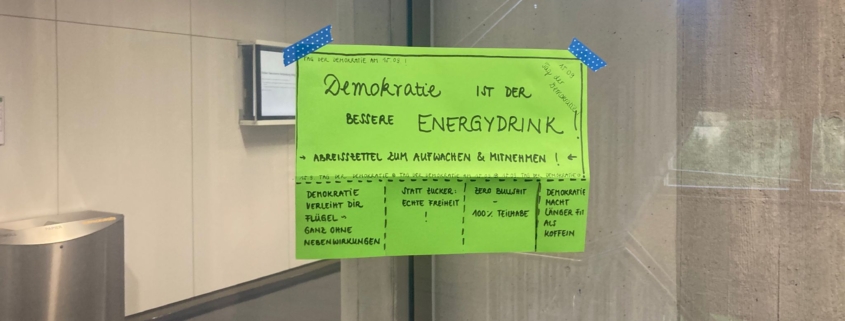 TAG DER DEMOKRATIE AM 15.09.!
15.09
Tag der
Demokratie!
Demokratie IST DER
BESSERE ENERGYDRINK!
→ ABREISSZETTEL ZUM AUFWACHEN & MITNEHMEN ! ←
15.9. TAG DER DEMOKRATIE
TAG DER DEMOKRATIE AM
15.09. TAG DER DEMOKRATIE
DEMOKRATIE
VERLEIHT DIR
FLÜGEL –
GANZ OHNE
NEBENWIRKUNGEN
STATT ZUCKER:
ECHTE FREIHEIT
!
ZERO BULLSHIT
–
100% TEILHABE
DEMOKRATIE
MACHT
LÄNGER FIT
ALS
KOFFEIN